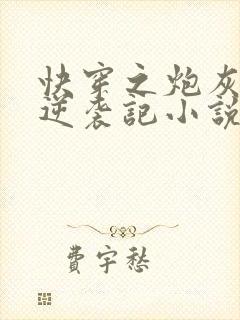 快穿之炮灰
逆袭記小説
費宇愁